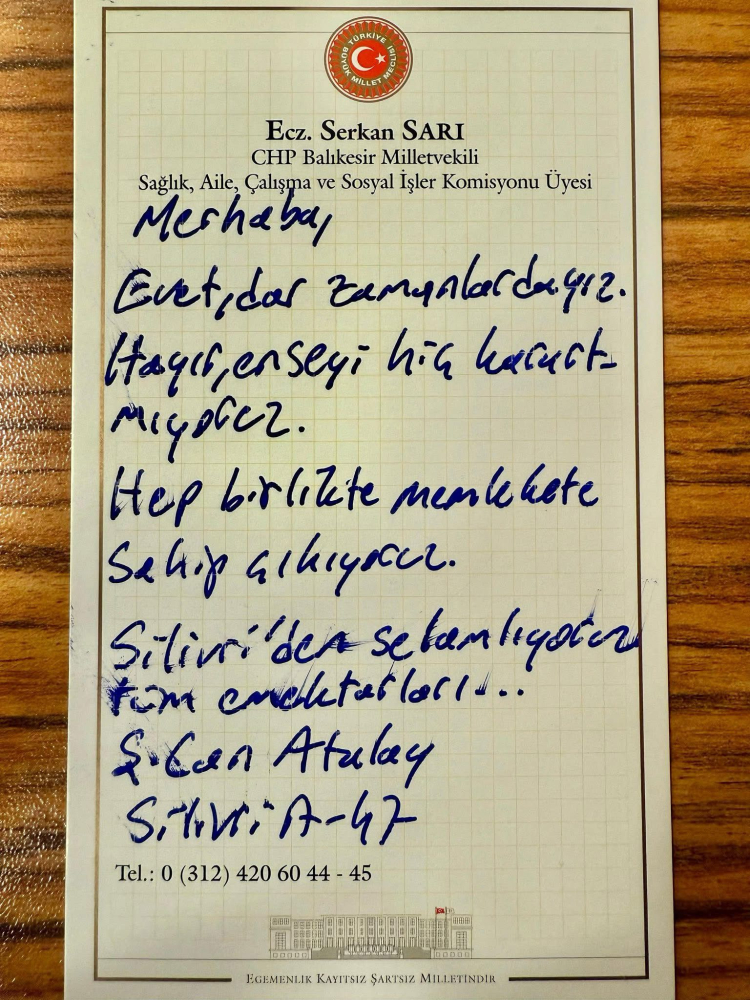 TÜRKİYE
BÜYÜK MİLLET MECLİSİ
Ecz. Serkan SARI
CHP Balıkesir Milletvekili
Sağlık, Aile, Çalışma ve Sosyal İşler Komisyonu Üyesi
Merhaba,
Evet, dar zamanlardayız.
Hayır, enseyi hiç karart-
mıyoruz.
Hep birlikte memlekete
sahip çıkıyoruz.
Silivri'den selamlıyoruz
tüm emektarları...
Ş. Can Atalay
Silivri A-47
Tel.: 0 (312) 420 60 44 - 45
EGEMENLİK KAYITSIZ ŞARTSIZ MİLLETİNDİR